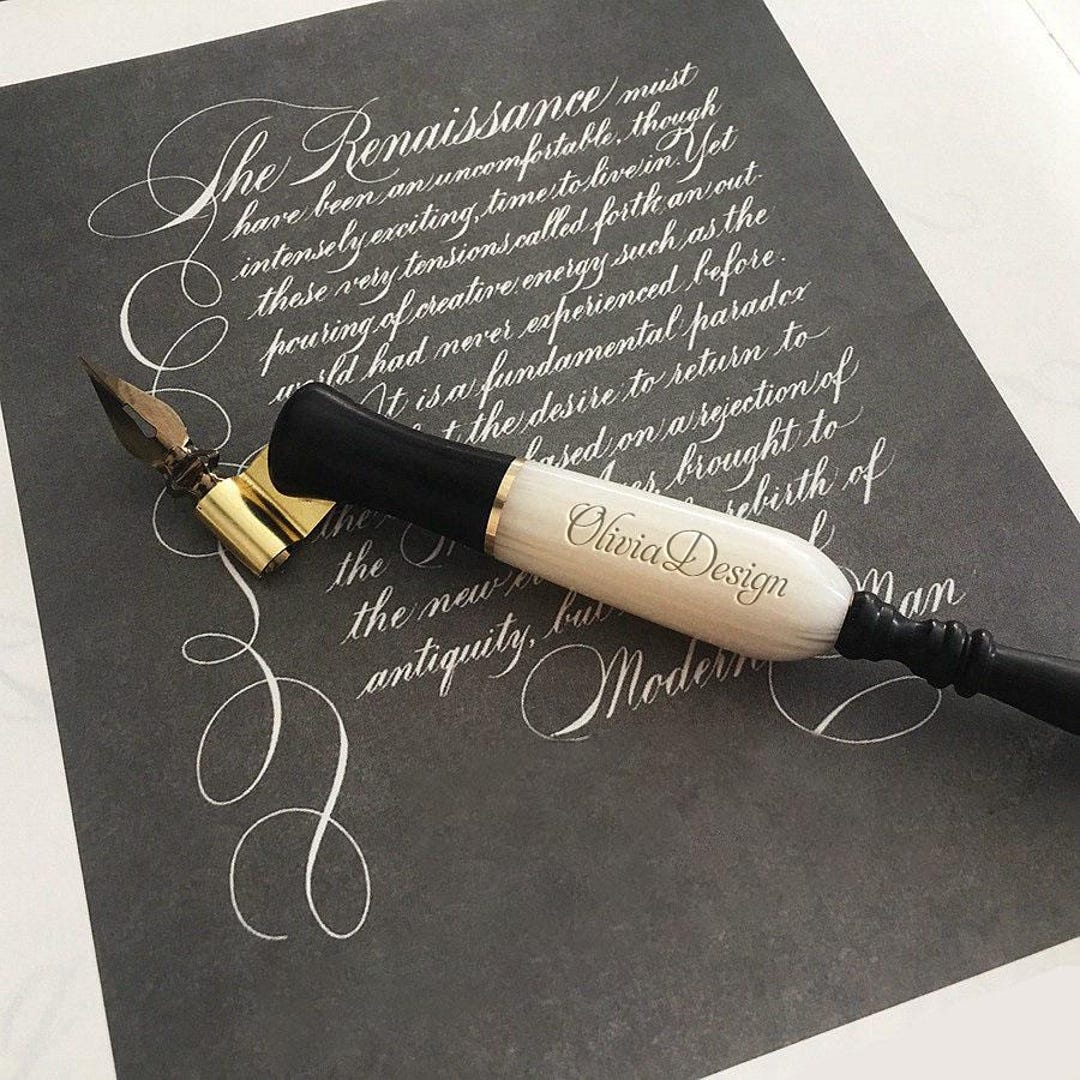 The Renaissance must
have been an uncomfortable, though
intensely exciting, time to live in. Yet
these very tensions called forth an out-
pouring of creative energy such as the
world had never experienced before.
It is a fundamental paradox
the desire to return to
based on a rejection of
the brought to
the rebirth of
the new of
antiquity, but
Modern Man
Olivia Design